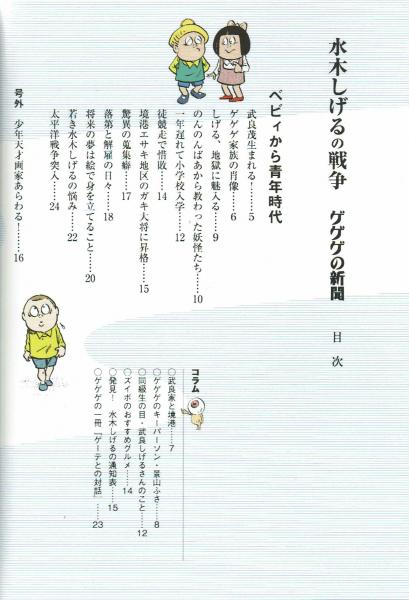 水木しげるの戦争 ゲゲゲの新聞 目次
ベビィから青年時代
武良茂生まれる!……5
ゲゲゲ家族の肖像……6
しげる、地獄に魅入る……9
のんのんばあから教わった妖怪たち……10
一年遅れて小学校入学……12
徒競走で惜敗……14
境港エサキ地区のガキ大将に昇格……15
驚異の蒐集癖……17
落第と解雇の日々……18
将来の夢は絵で身を立てること……20
若き水木しげるの悩み……22
太平洋戦争突入……24
号外 少年天才画家あらわる!……16
コラム
○武良家と境港……7
○ゲゲゲのキーパーソン・景山ふさ……8
○同級生の目・武良しげるさんのこと……12
○ズイボのおすすめグルメ……14
○発見! 水木しげるの通知表……15
○ゲゲゲの一冊『ゲーテとの対話』……23